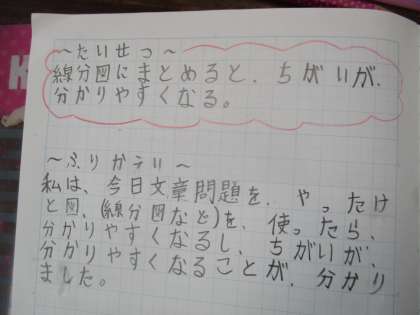 ～たいせつ～
線分図にまとめると、ちがいが、
分かりやすくなる。
～ふりかえり～
私は、今日文章問題を、やったけ
と図、(線分図など)を、使ったら、
分かりやすくなるし、ちがいが、
分かりやすくなることが、分かり
ました。